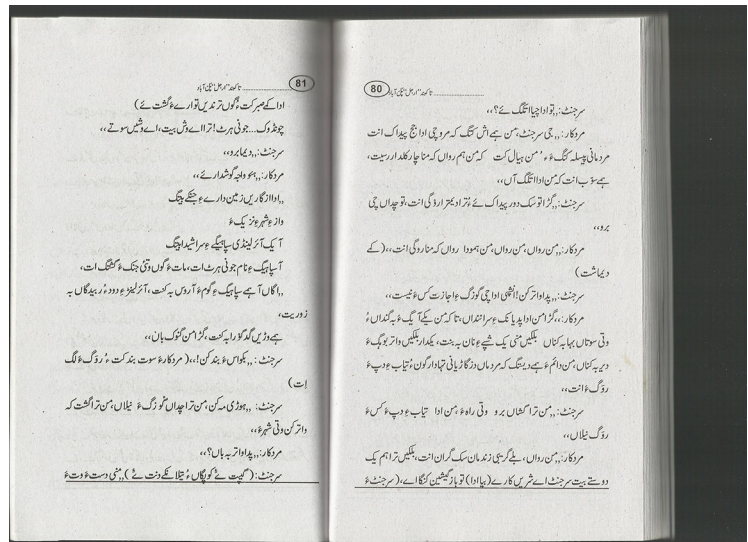 80 تاکبند "ارجل" نیکیں آباد
سرجنٹ:,,تو ادا چیا اتکگ ئے؟،،
مردکار:,,جی سرجنٹ، من ہمے اش کتگ کہ مروچی ادا جج پیداک انت
مردمانی پیسلہ کنگ ءَ ءَ من ہیال کت کہ من ہم رواں کہ منا چار کلدار رسیت،
ہمے سوب انت کہ من ادا اتکگ آں،،
سرجنٹ:,,گڑا تو سک دور پیداک ئے ءُ ترا دیمترا رؤگی انت، تو چداں چی
برو،،
مردکار:,,من رواں، من رواں، من ہمودا رواں کہ منا روگی انت،،(کے
دیماشت)
سرجنٹ:,,پدا واتر کن! انچھی ادا چی گوزگ ءِ اجازت کس ءَ نیست،،
مردکار:,,گڑا من ادا پدیانک ءِ سرا ننداں، تا کہ من یکے آیگ ءَ بہ گنداں ءُ
وتی سوتاں بہا بہ کناں بلکیں منی یک شپے ءِ نان بہ بنت، یکدار بلکیں واتر بوہگ ءَ
دیر بہ کناں، من دائم ءَ ہمے دیستگ کہ مردماں دزگاڑیانی تہا دار گوں ءُ تیاب ءِ دپ ءَ
روگ ءَ انت،،
سرجنٹ:,,من ترا گشاں برو وتی راہ ءَ، من ادا تیاب ءِ دپ ءَ کس ءَ
روگ نیلاں،،
مردکار:,,من رواں، بلے گریبی زندمان سک گران انت، بلکیں ترا ہم یک
دوستے بیت سرجنٹ اے شریں کارے (بیا ادا) تو باز گیشیں کنگا اے، (سرجنٹ ءَ
81 تاکبند "ارجل" نیکیں آباد
ادا کے صبر کت ءُ گوں ترندیں توارے ءَ گشت ئے)
چونڈوک... جونی ہرٹ! ترا اے وش بیت، اے وشیں سوتے،،
سرجنٹ:,,دیما برو،،
مردکار:,,ہو واجہ گوشدارے،،
,,ادا ازگاریں زمین دارے ءِ جنکے چتگ
واز ءِ شہر ءِ نزیک ءَ
آیک آئرلینڈی سپاہیگے ءِ سرا شیدا چتگ
آ سپاہیگ ءِ نام جونی ہرٹ ات، مات ءَ گوں وتی جنک ءَ گشتگ ات،
,,اگاں آ ہمے سپاہیگ ءِ گوم ءَ آروس بہ کنت، آئرلینڈ ءِ دود ءُ ربیدگاں بہ
زوریت،
ہمے وڑیں گدگور ا بہ کنت، گڑا من گنوک باں،،
سرجنٹ:,,بکواس ءَ بند کن!،،(مردکار ءَ سوت بند کت ءُ رؤگ ءَ لگ
اِت)
سرجنٹ:,,ہوڑی مہ کن، من ترا چداں گوزگ ءَ نیلاں، من ترا گشت کہ
واتر کن وتی شہر ءَ،،
مردکار:,,پدا واتر بہ باں؟،،
سرجنٹ:(گپت ئے کوپگاں ءُ تیلانکے دت ئے),,منی دست ءَ وت ءَ